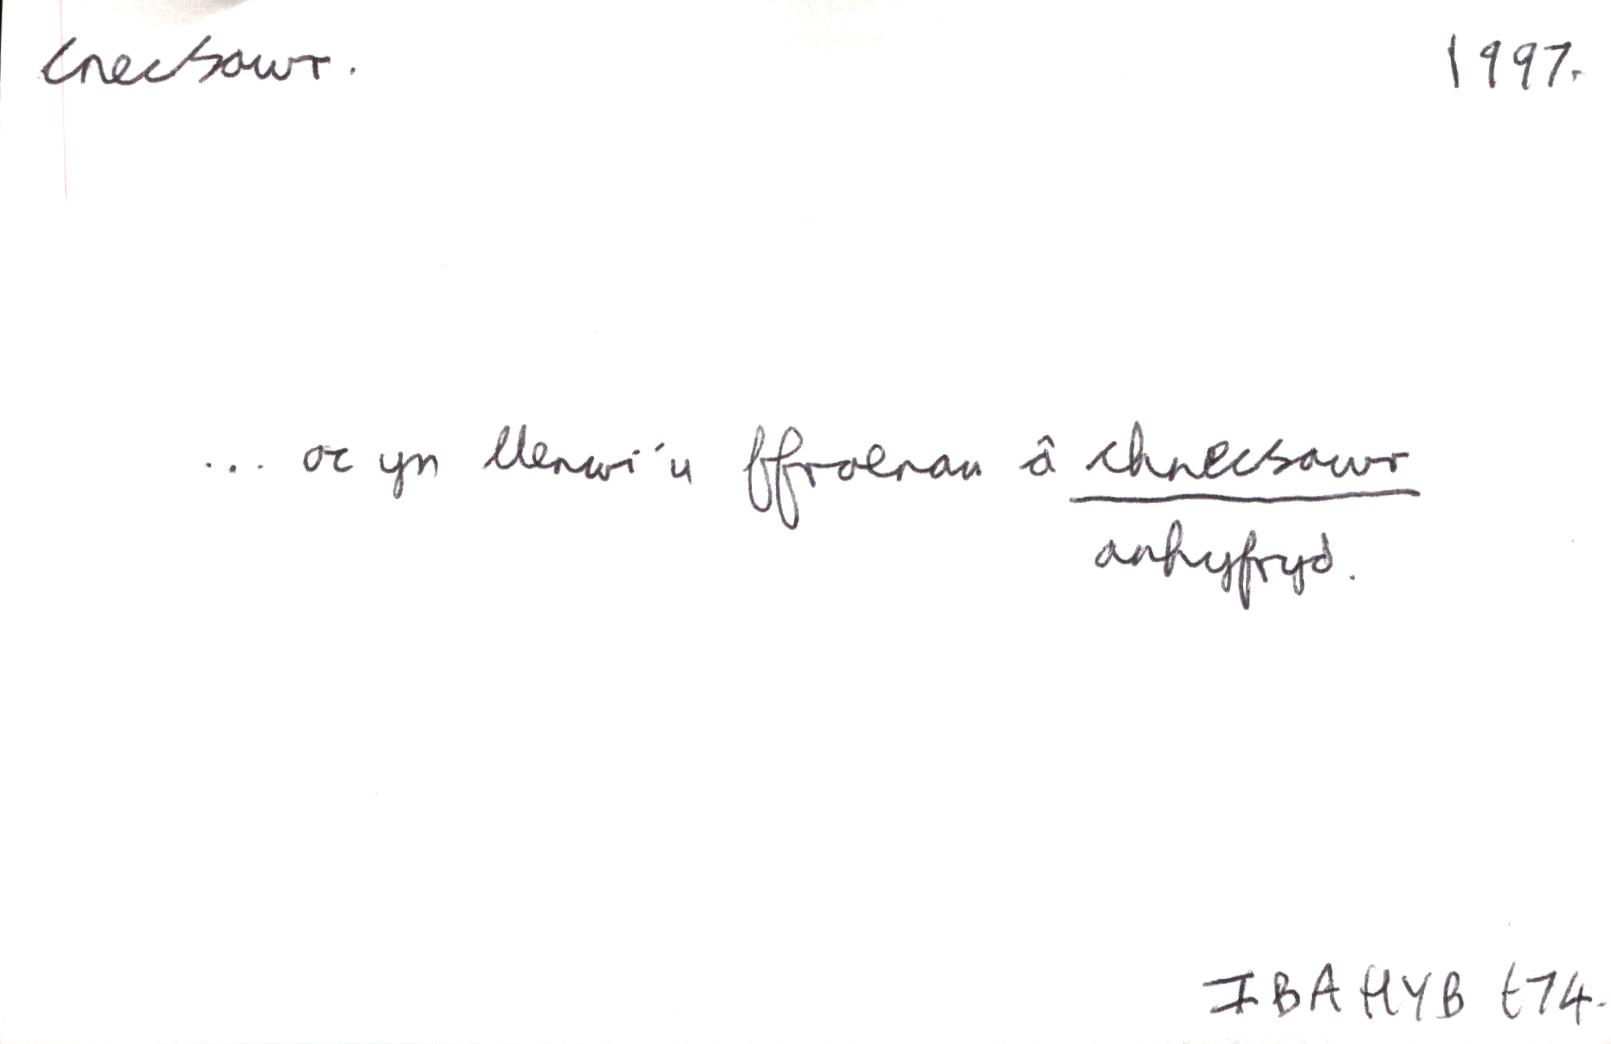 cnecsawr. 1997.
... ac yn llenwi'u ffroenau â chnecsawr
anhyfryd.
IBAHYB t74.